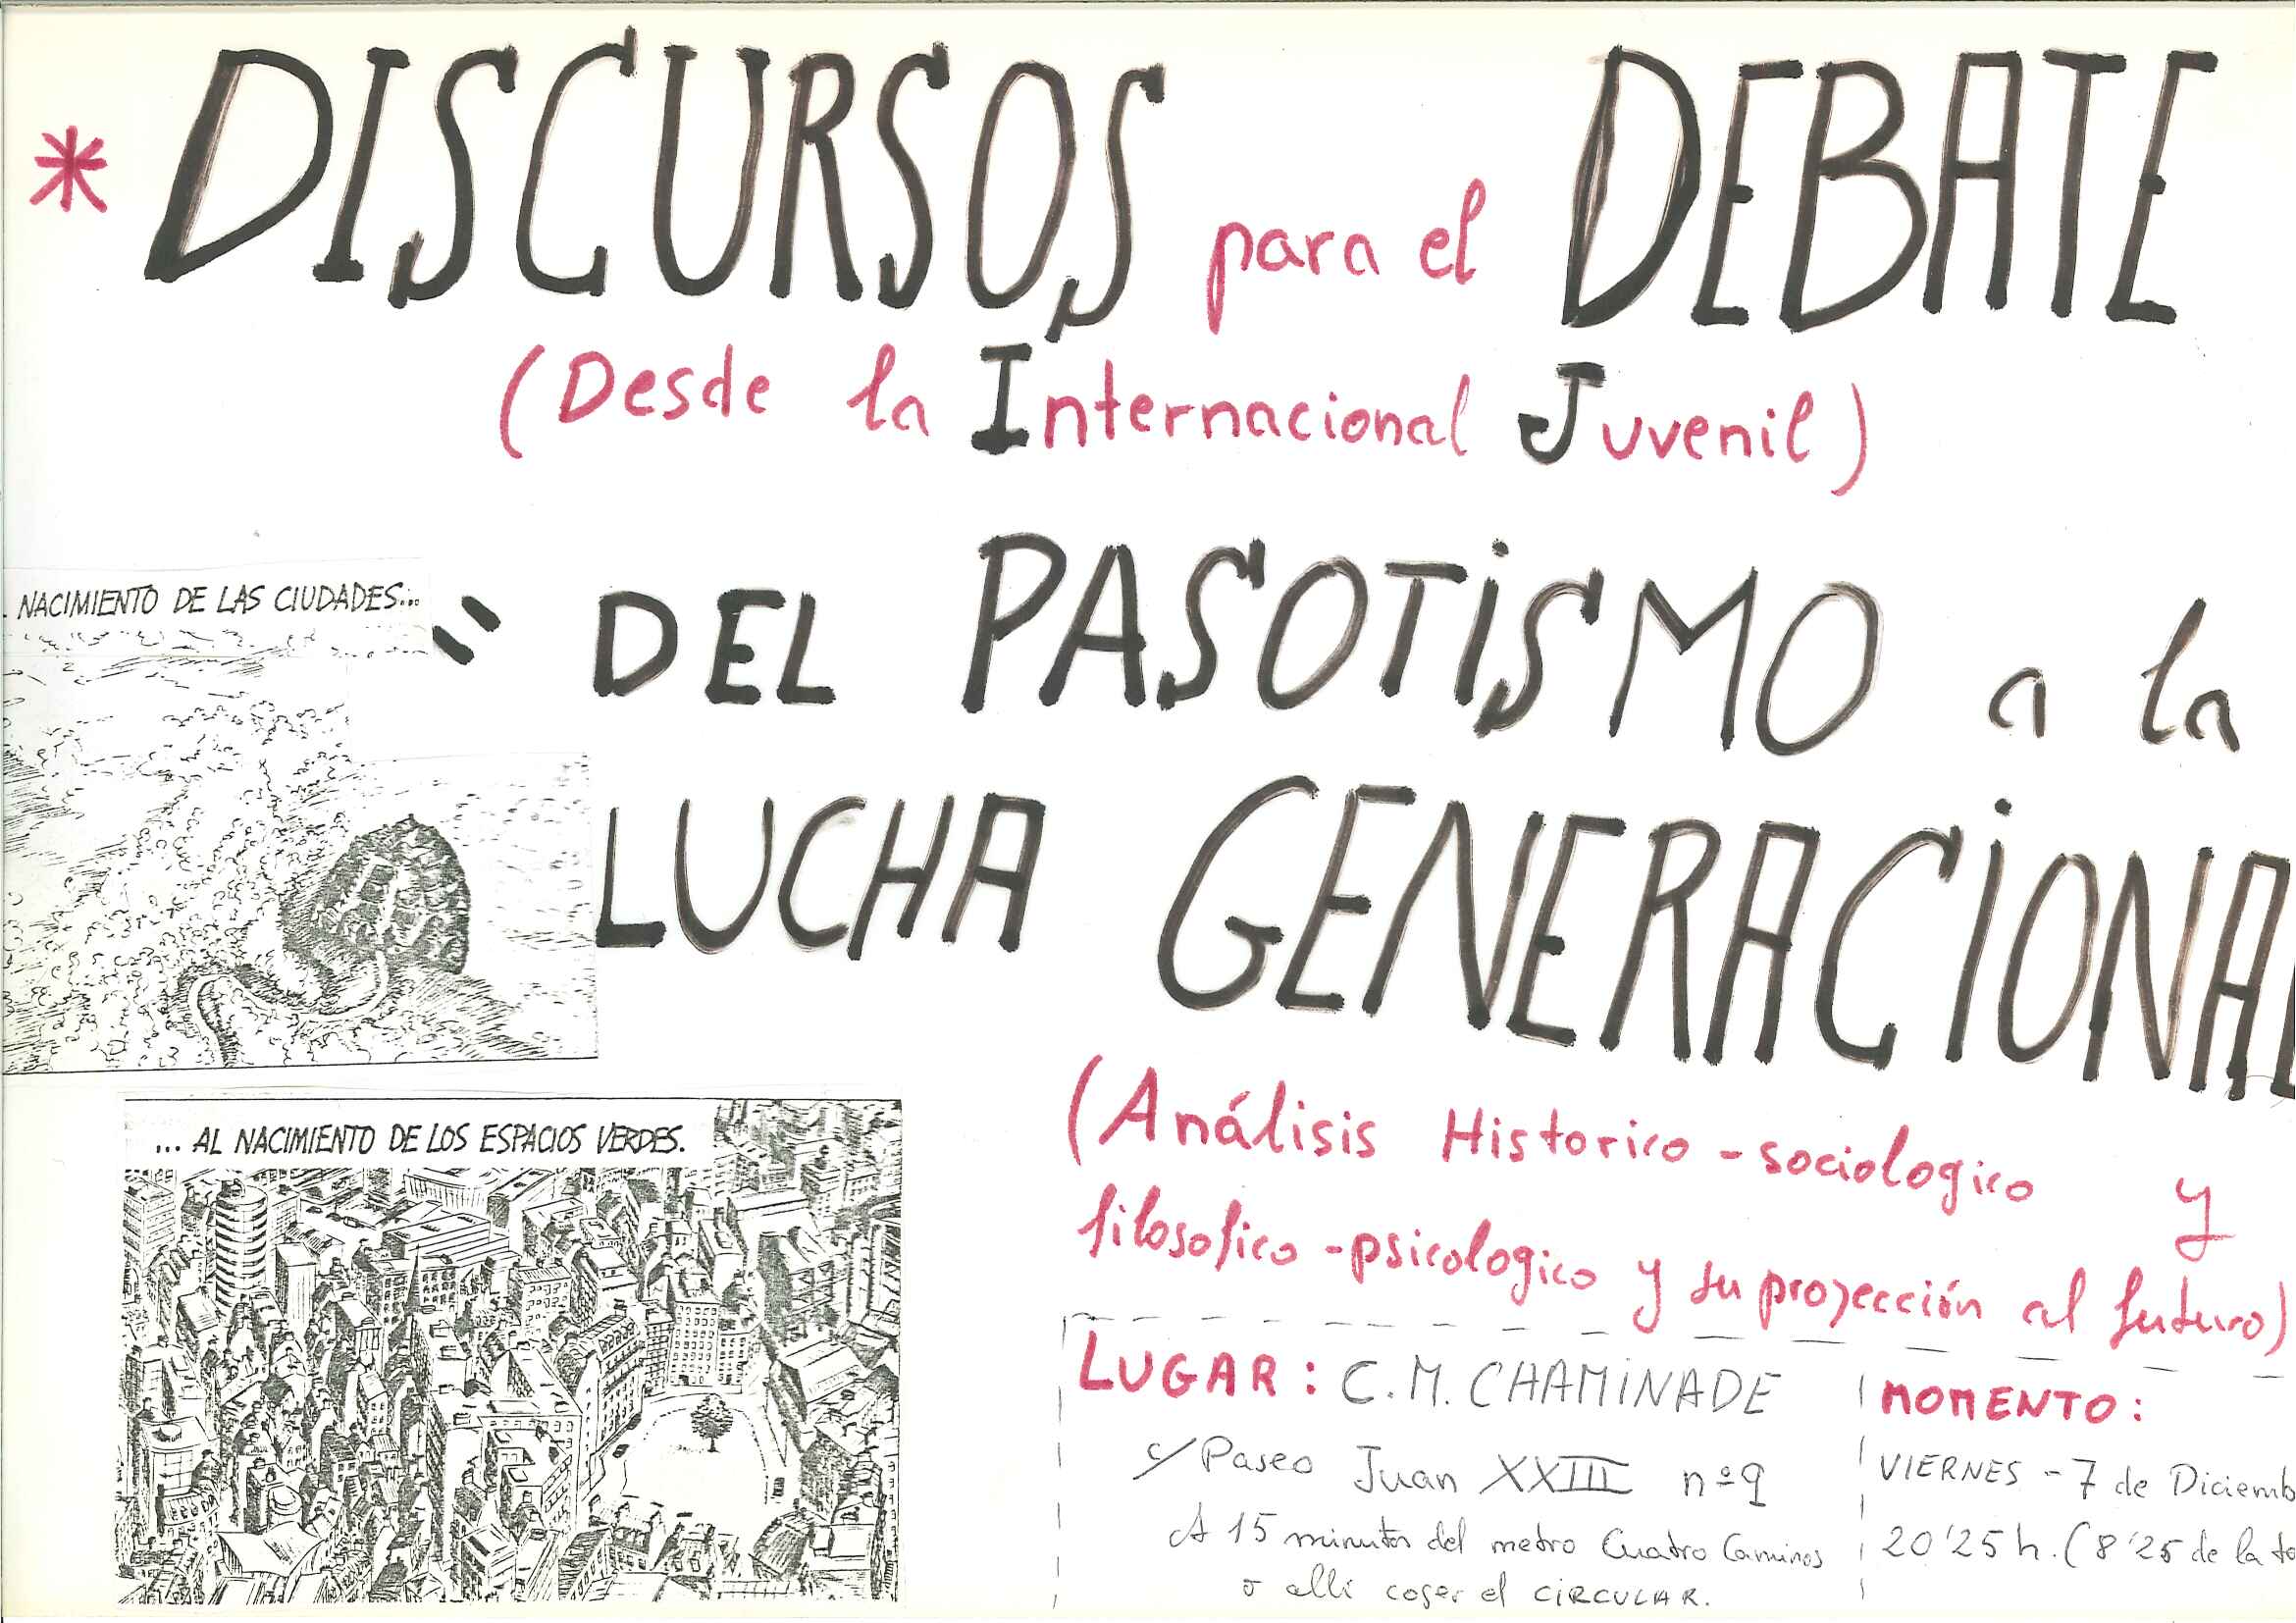 * DISCURSOS para el DEBATE
(Desde la Internacional Juvenil)
NACIMIENTO DE LAS CIUDADES...
" DEL PASOTISMO a la
LUCHA GENERACIONAL
... AL NACIMIENTO DE LOS ESPACIOS VERDES.
(Análisis Historico - sociologico y
filosofico - psicologico y su proyección al futuro)
LUGAR: C.M. CHAMINADE
c/ Paseo Juan XXIII nº 9
A 15 minutos del metro Cuatro Caminos
o alli coger el CIRCULAR.
MOMENTO:
VIERNES - 7 de Diciemb
20'25 h. (8'25 de la ta